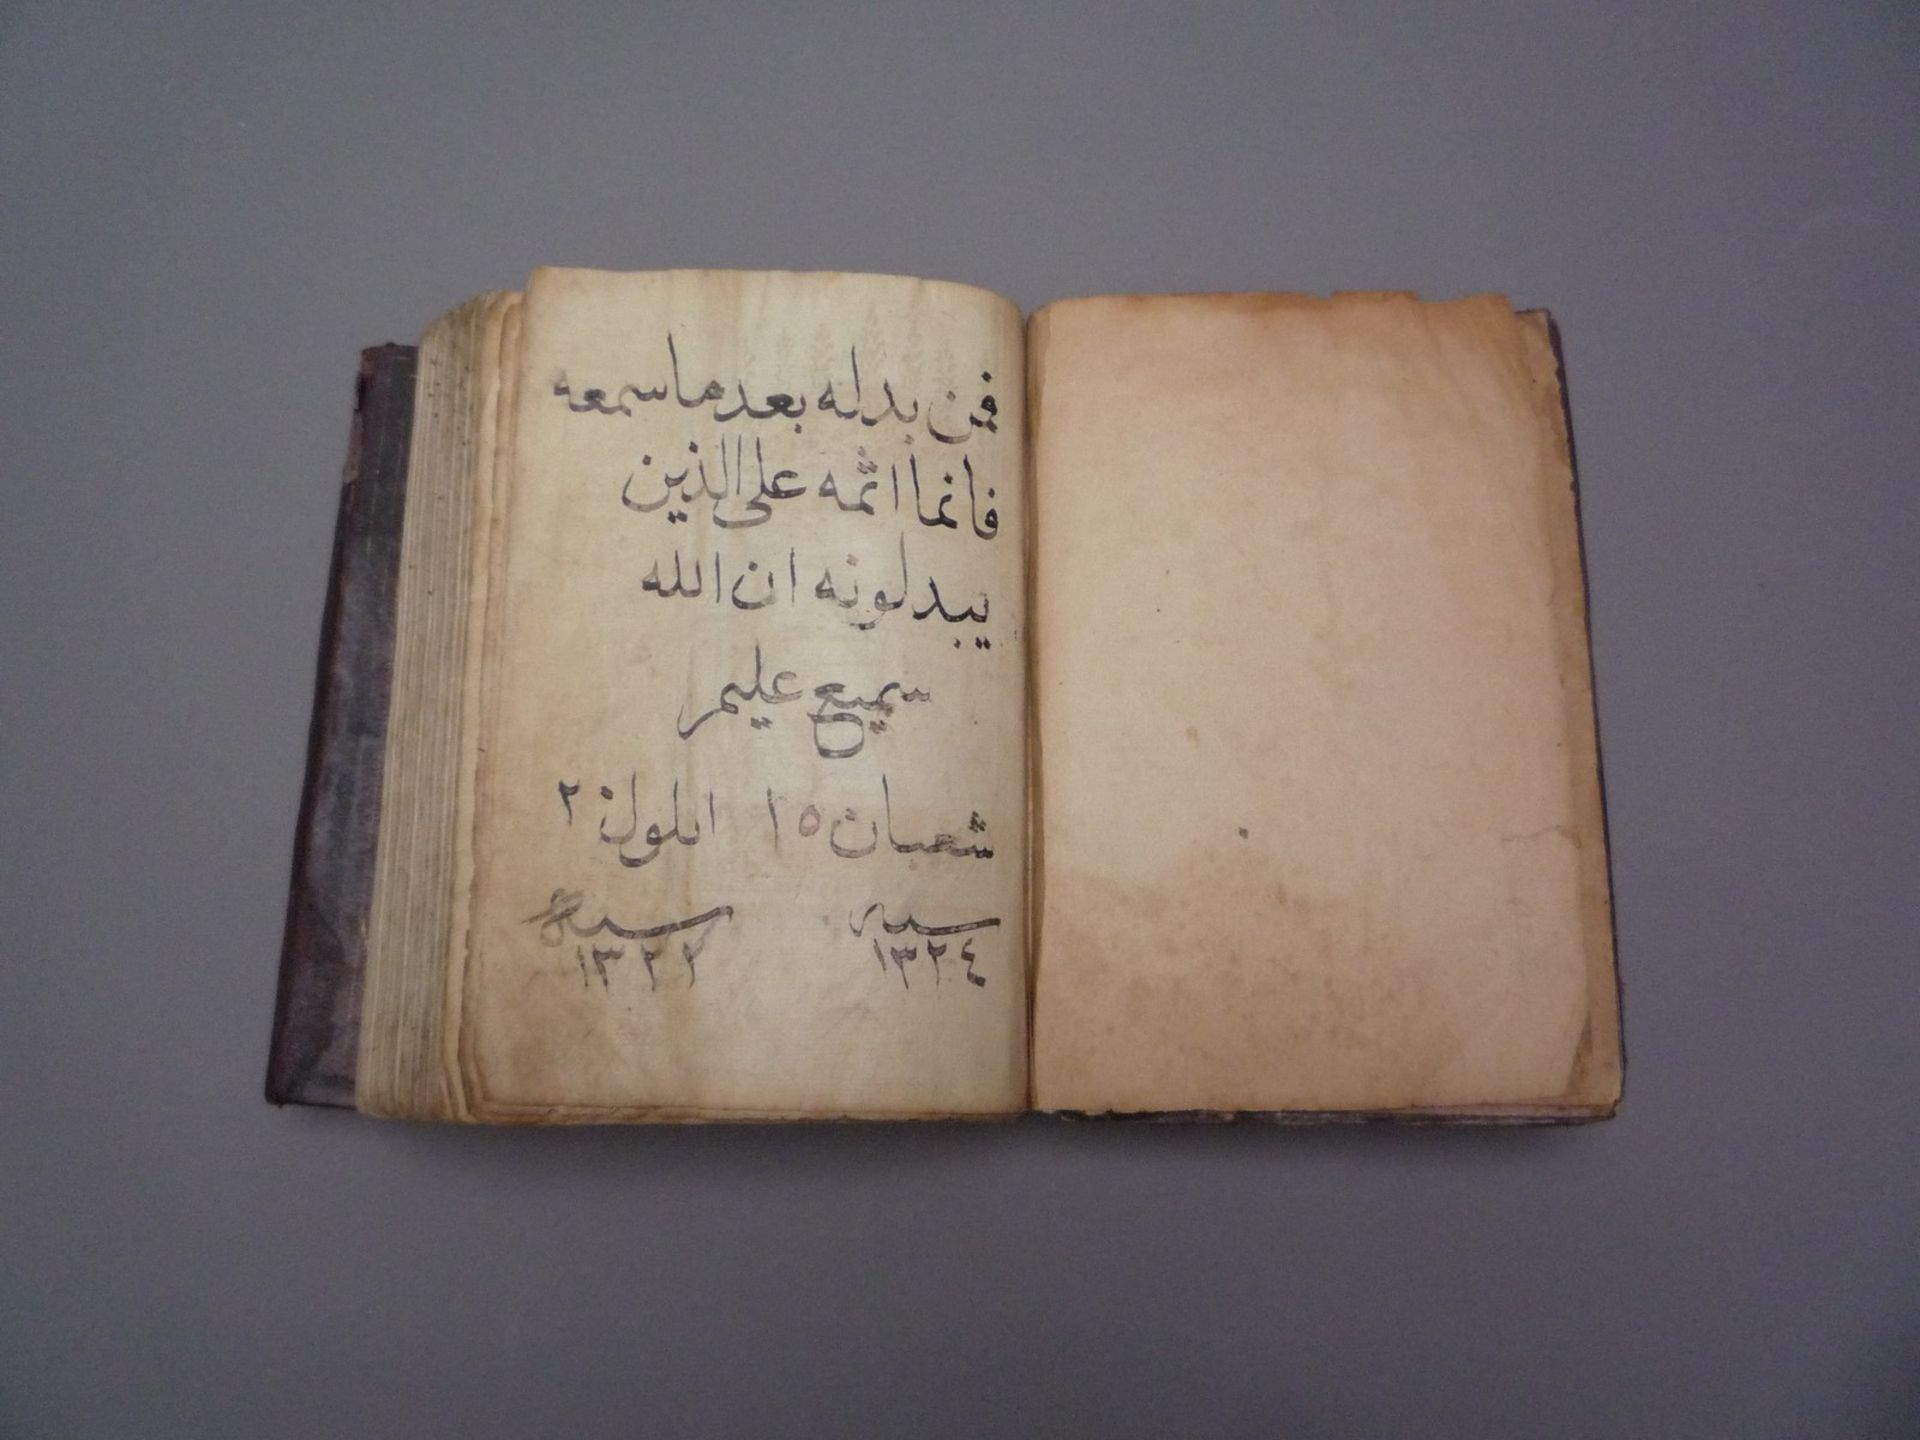 فمن بدله بعد ما سمعه
فانما اثمه على الذين
يبدلونه ان الله
سميع عليم
شعبان ١٥ ايلول ٢
سنه سنه
١٣٢٤ ١٣٢٢